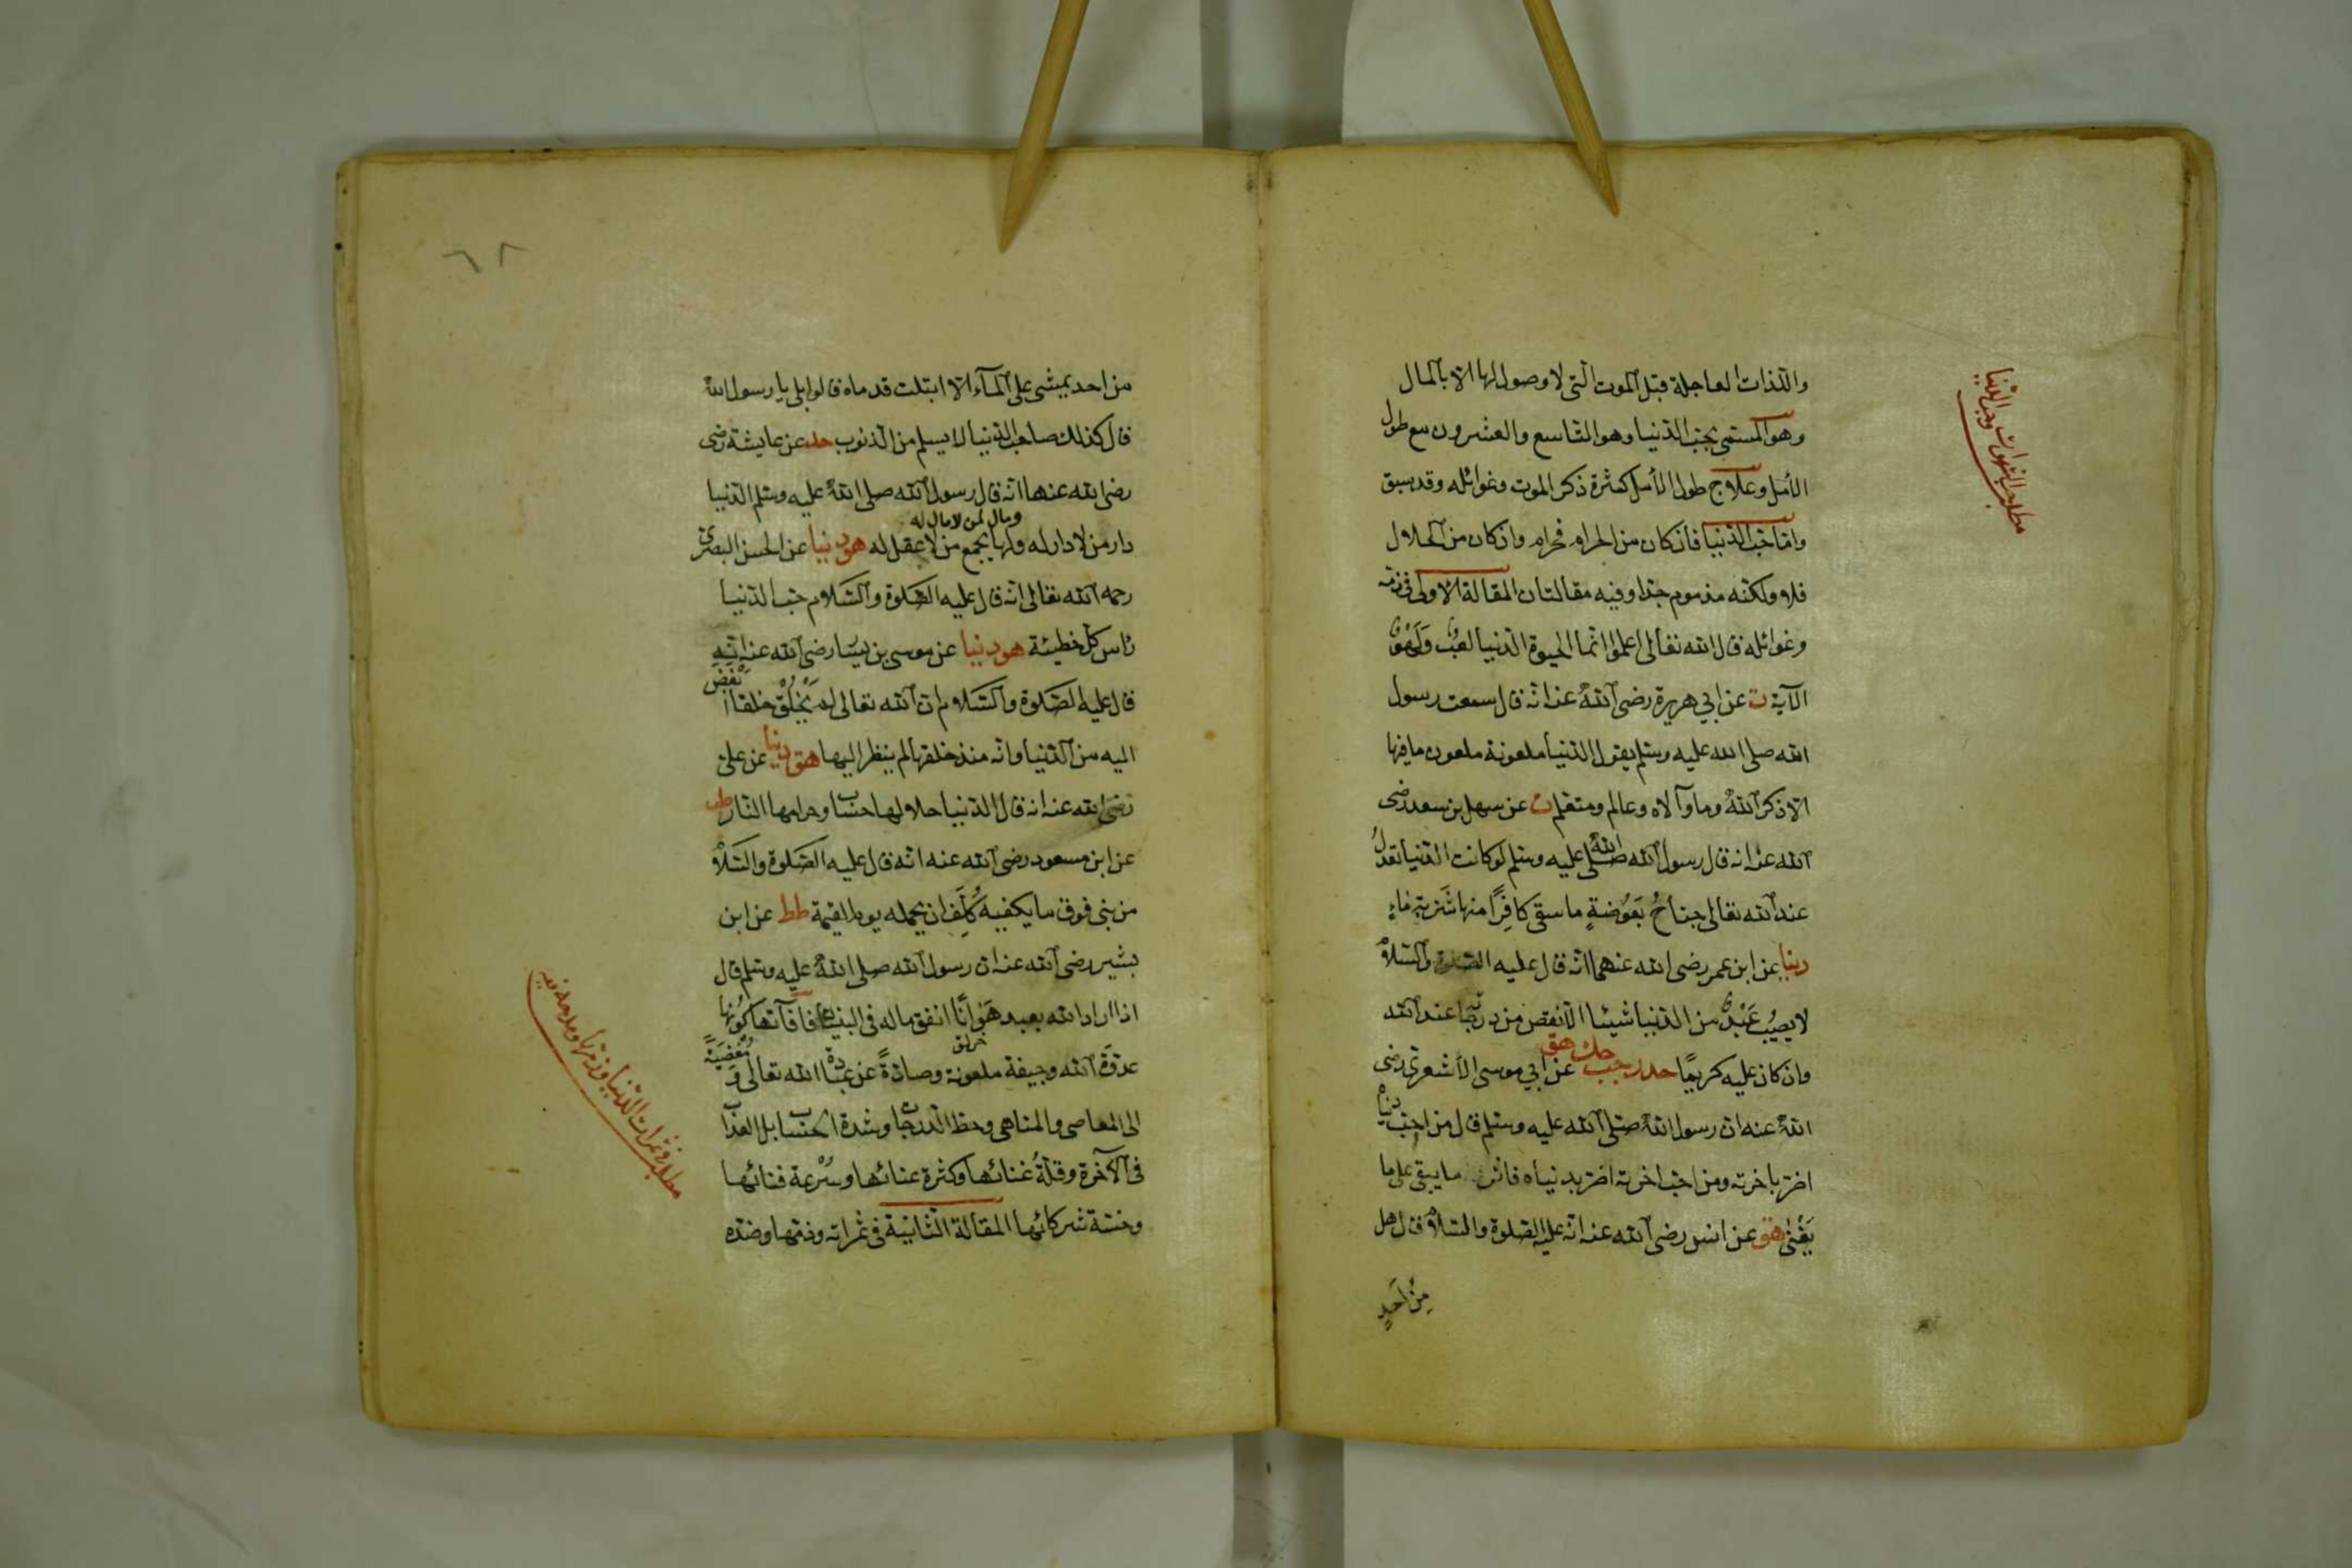 واللذات العاجلة قبل الموت التى لا وصول لها الا بالمال
وهو المستمى بحب الدنيا وهو التاسع والعشرون مع طول
الأمل وعلاج طول الأمل كثرة ذكر الموت وغوائله وقد سبق
وامّا حبّ الدنيا فان كان من الحرام فحرام وان كان من الحلال
فلا ولكنّه مذموم جدا وفيه مقالتان المقالة الاولى فى ذمّه
وغوائله قال الله تعالى اعلموا انّما الحيوة الدنيا لعب ولهو
الآية ت عن ابي هريرة رضى الله عنه انّه قال سمعت رسول
الله صلى الله عليه وسلم يقول الدنيا ملعونة ملعون ما فيها
الا ذكر الله وما والاه وعالم ومتعلم ت عن سهل بن سعد رضى
الله عنه انه قال رسول الله صلى الله عليه وسلم لو كانت الدنيا تعدل
عند الله تعالى جناح بعوضةٍ ما سقى كافرًا منها شربة ماءٍ
دنيا عن ابن عمر رضى الله عنهما انّه قال عليه الصلوة والسلام
لا يصيب عبدٌ من الدنيا شيئا الا نقص من درجاته عند الله
وان كان عليه كريمًا حد ز حب حك هق عن ابي موسى الأشعرى رضى
الله عنه ان رسول الله صلى الله عليه وسلم قال من احب دنياه
اضرّ باخرته ومن احبّ اخرته اضرّ بدنياه فاثروا ما يبقى على ما
يَفْنى هق عن انس رضى الله عنه انّه عليه الصلوة والسلام قال هل
مِنْ اَحَدٍ
مطلب حب الشهوات وحب الدنيا
٦٨
من احد يمشى على المآء الا ابتلت قدماه قالوا بلى يا رسول الله
قال كذلك صاحب الدنيا لا يسلم من الذنوب حد عن عايشة رضى
رضى الله عنها انه قال رسول الله صلى الله عليه وسلم الدنيا
ومال لمن لا مال له
دار من لا دار له ولها يجمع من لا عقل له هق دنيا عن الحسن البصرى
رحمه الله تعالى انّه قال عليه الصلوة والسلام حبّ الدنيا
رأس كلّ خطيئة هق دنيا عن موسى بن يسار رضى الله عنه انّه
قال عليه الصلوة والسلام ان الله تعالى لم يَخْلُقْ خلقا ابغض
اليه من الدنيا وانّه منذ خلقها لم ينظر اليها هق دنيا عن على
رضى الله عنه انه قال الدنيا حلالها حساب وحرامها النار طب
عن ابن مسعود رضى الله عنه انّه قال عليه الصلوة والسلام
من بنى فوق ما يكفيه كُلِّفَ ان يحمله يوم القيمة طط عن ابن
بشير رضى الله عنه ان رسول الله صلى الله عليه وسلم قال
اذا اراد الله بعبد هَوَانًا انفق ماله فى البنيان فآفاتها كونها
عدوّة الله وجيفة ملعونة وصادّةً عن عبادة الله تعالى ومُفْضِيَةً
الى المعاصى والمناهى وحط الدرجات وشدة الحساب بل العذاب
فى الآخرة وقلّةُ غنائها وكثرة عنائها وسُرْعة فنائها
وخسّة شركائها المقالة الثانية فى ثمراته وذمّها وضدّه
مطلب فى ثمرات الدنيا وذمّها